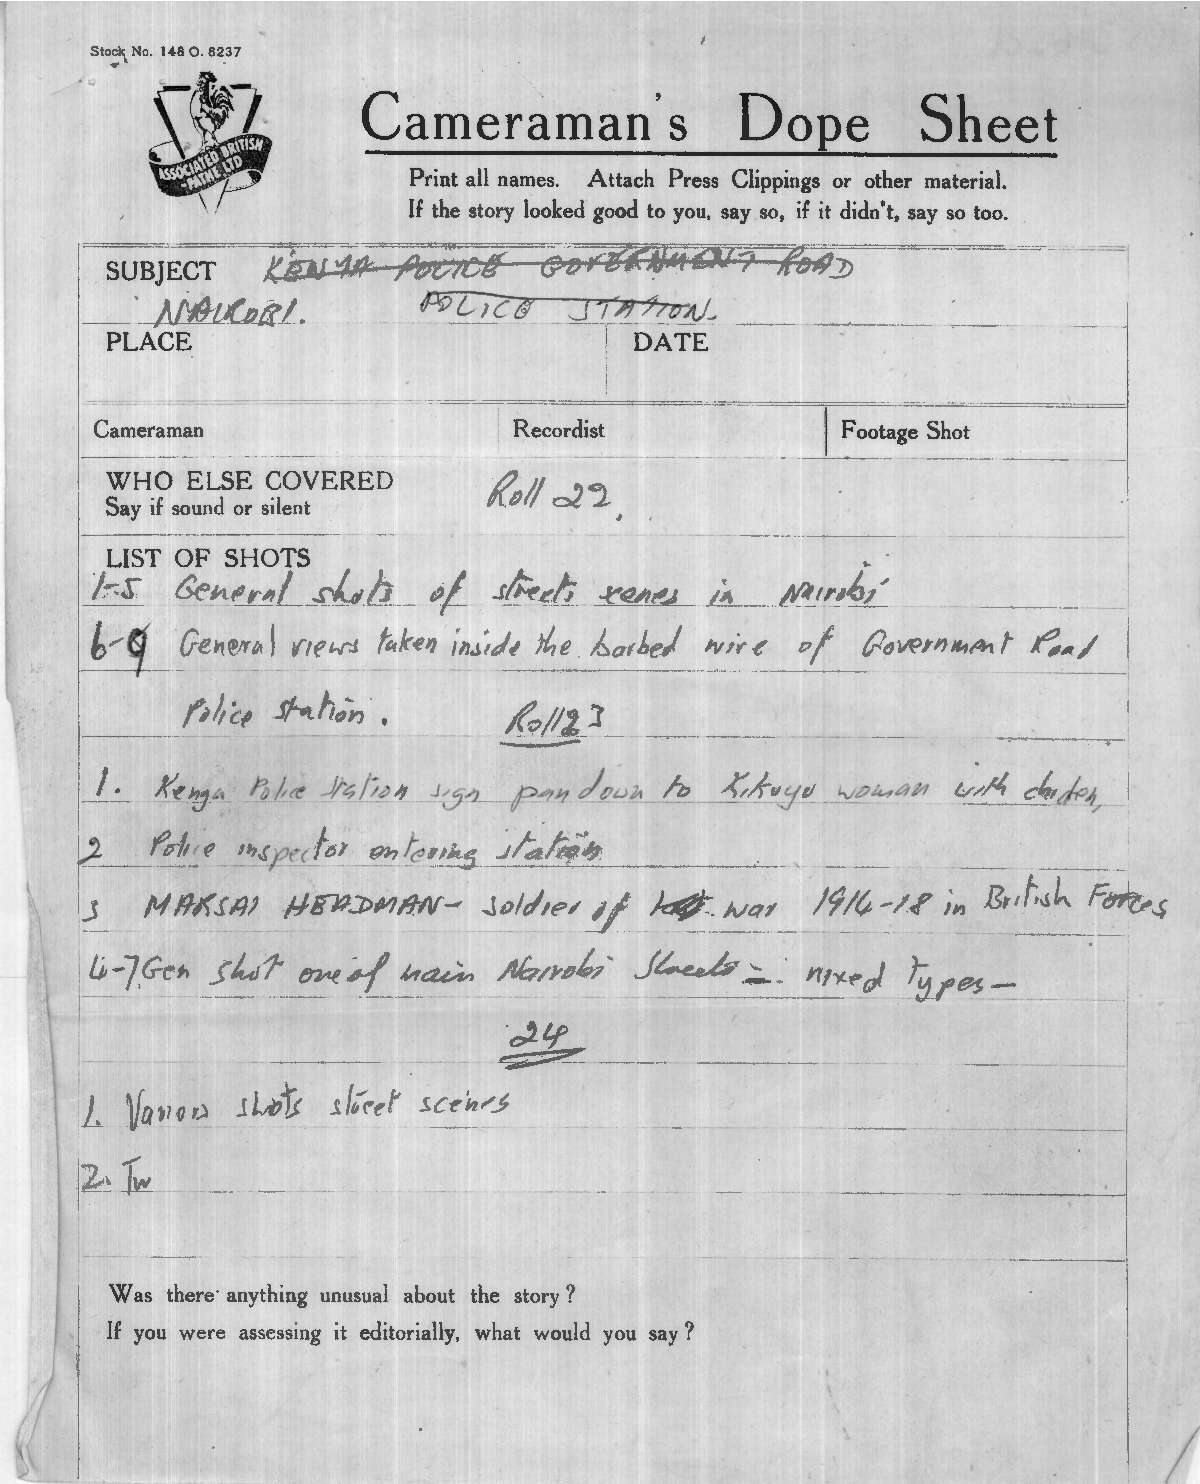 Stock No. 148 O. 8237
ASSOCIATED BRITISH
-PATHE LTD
Cameraman's Dope Sheet
Print all names. Attach Press Clippings or other material.
If the story looked good to you, say so, if it didn't, say so too.
SUBJECT KENYA POLICE GOVERNMENT ROAD
NAIROBI. POLICE STATION.
PLACE DATE
Cameraman Recordist Footage Shot
WHO ELSE COVERED
Say if sound or silent Roll 22.
LIST OF SHOTS
1-5 General shots of streets scenes in Nairobi
6-9 General views taken inside the barbed wire of Government Road
Police station.
Roll 23
1. Kenya Police Station sign pan down to Kikuyu woman with
2 Police inspector entering station
3 MAKSAI HEADMAN - soldier of war 1914-18 in British Forces
4-7. Gen shot one of main Nairobi Streets - mixed types -
24
1. Various shots street scenes
2. Tw
Was there anything unusual about the story?
If you were assessing it editorially, what would you say?